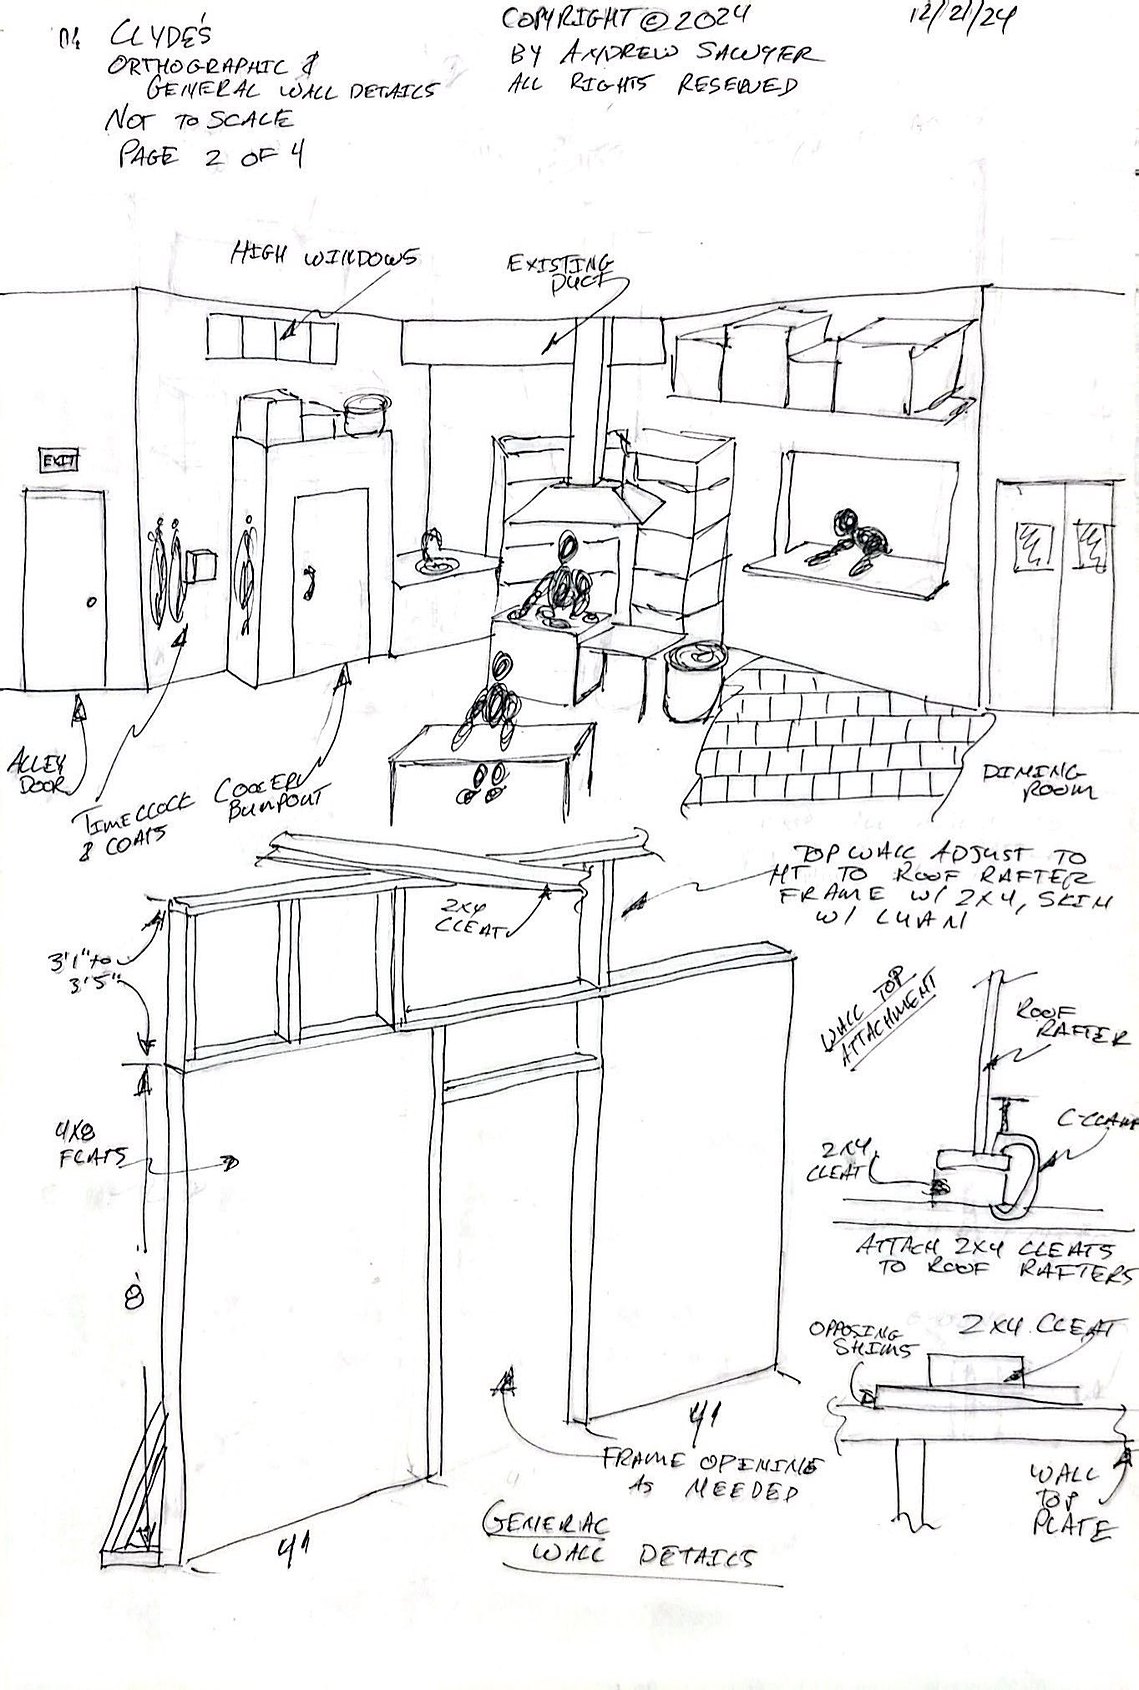 CLYDE'S
ORTHOGRAPHIC &
GENERAL WALL DETAILS
NOT TO SCALE
PAGE 2 OF 4
COPYRIGHT © 2024
BY ANDREW SAWYER
ALL RIGHTS RESERVED
12/21/24
HIGH WINDOWS
EXISTING
DUCT
EXIT
ALLEY
DOOR
TIMECLOCK
& COATS
COOLER
BUMPOUT
DINING
ROOM
TOP WALL ADJUST TO
HT TO ROOF RAFTER
FRAME W/ 2X4, SKIN
W/ LUAN
2X4
CLEAT
3'1" to
3'5"
4X8
FLATS
8'
4'
4'
FRAME OPENING
AS NEEDED
GENERAL
WALL DETAILS
WALL TOP
ATTACHMENT
ROOF
RAFTER
C-CLAMP
2X4
CLEAT
ATTACH 2X4 CLEATS
TO ROOF RAFTERS
OPPOSING
SHIMS
2X4 CLEAT
WALL
TOP
PLATE